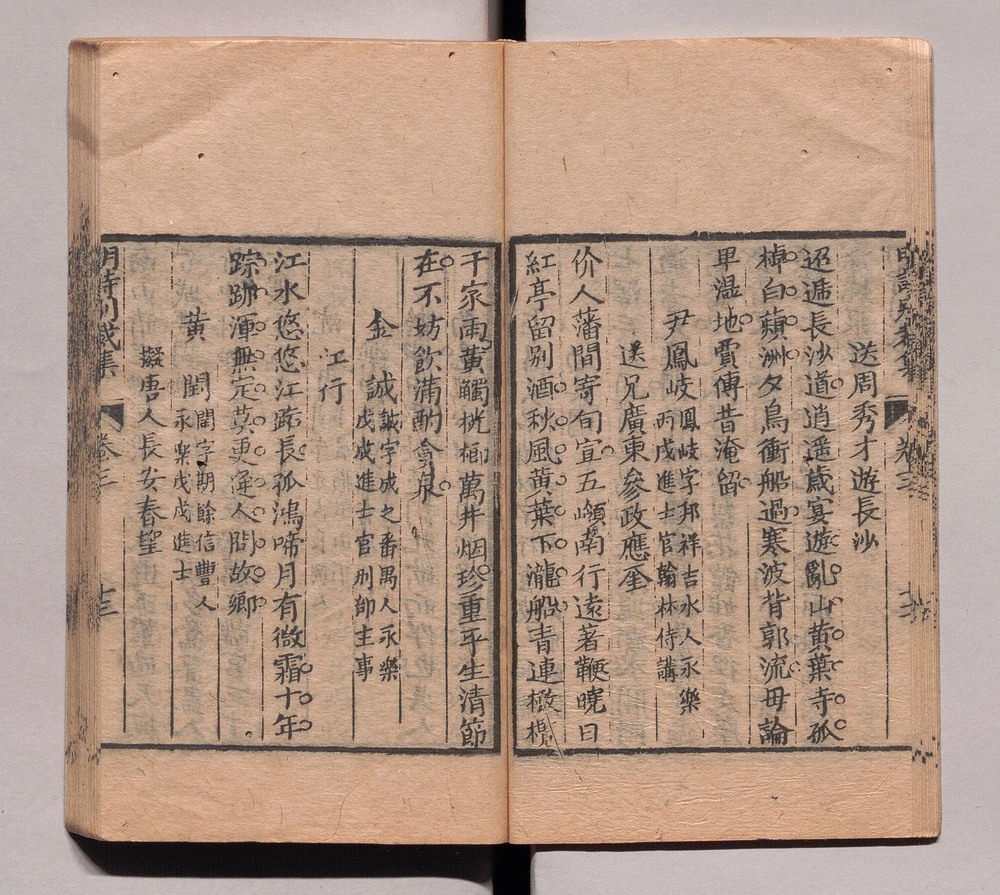 明詩別裁集
卷三
送周秀才遊長沙
迢遞長沙道逍遥歲宴遊亂山黃葉寺孤
棹白蘋洲夕鳥衝船過寒波背郭流毋論
卑濕地賈傅昔淹留
尹鳳岐
鳳岐字邦祥吉水人永樂
丙戌進士官翰林侍講
送兄廣東參政應奎
价人藩閫寄旬宣五嶺南行遠著鞭曉日
紅亭留别酒秋風黃葉下瀧船青連檄欖
千家雨黃觸桄榔萬井烟珍重平生清節
在不妨飲滿酌貪泉
金誠
誠字成之番禺人永樂
戊戌進士官刑部主事
江行
江水悠悠江路長孤鴻啼月有微霜十年
踪跡渾無定莫更逢人問故鄉
黃閏
閏字期餘信豐人
永樂戊戌進士
擬唐人長安春望
明詩別裁集
卷三
十三